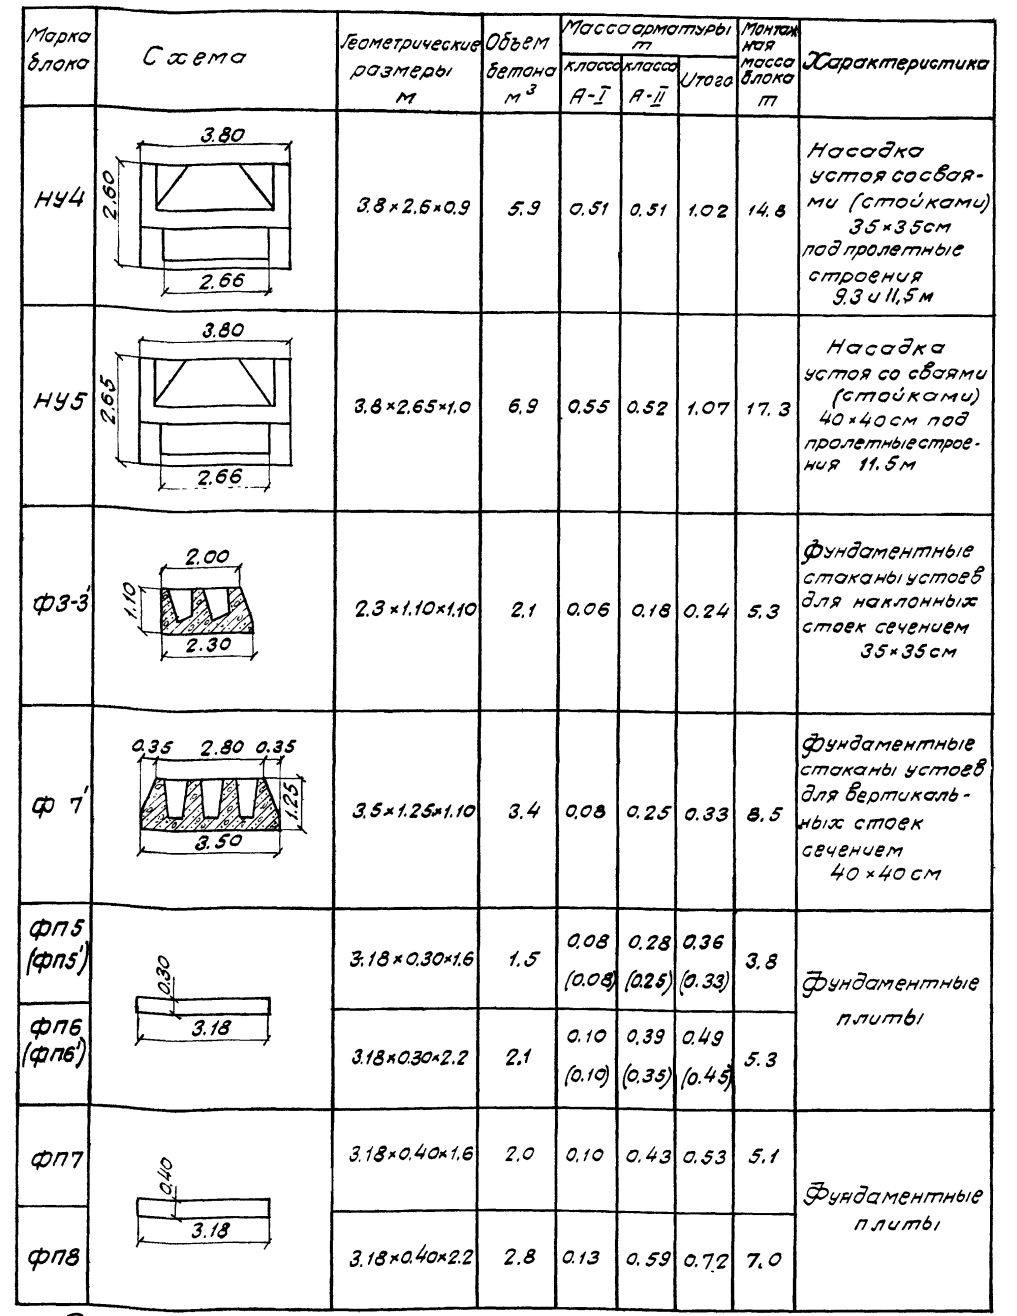 Марка
блока
Схема
Геометрические
размеры
м
Объем
бетона
м³
Масса арматуры
т
класса
А-I
класса
А-II
Итого
Монтаж
ная
масса
блока
т
Характеристика
НУ4
3.80
2.60
2.66
3.8×2.6×0.9
5.9
0.51
0.51
1.02
14.8
Насадка
устоя со свая-
ми (стойками)
35×35см
под пролетные
строения
9.3 и 11,5 м
НУ5
3.80
2.65
2.66
3.8×2.65×1.0
6.9
0.55
0.52
1.07
17.3
Насадка
устоя со сваями
(стойками)
40×40 см под
пролетные строе-
ния 11.5м
Ф3-3'
2.00
1.10
2.30
2.3×1.10×1.10
2.1
0.06
0.18
0.24
5.3
Фундаментные
стаканы устоев
для наклонных
стоек сечением
35×35см
Ф 7'
0.35 2.80 0.35
1.25
3.50
3.5×1.25×1.10
3.4
0.08
0.25
0.33
8.5
Фундаментные
стаканы устоев
для вертикаль-
ных стоек
сечением
40×40 см
ФП5
(ФП5')
0.30
3.18
3.18×0.30×1.6
1.5
0.08
(0.08)
0.28
(0.25)
0.36
(0.33)
3.8
Фундаментные
плиты
ФП6
(ФП6')
3.18×0.30×2.2
2.1
0.10
(0.10)
0.39
(0.35)
0.49
(0.45)
5.3
ФП7
0.40
3.18
3.18×0.40×1.6
2.0
0.10
0.43
0.53
5.1
Фундаментные
плиты
ФП8
3.18×0.40×2.2
2.8
0.13
0.59
0.72
7.0